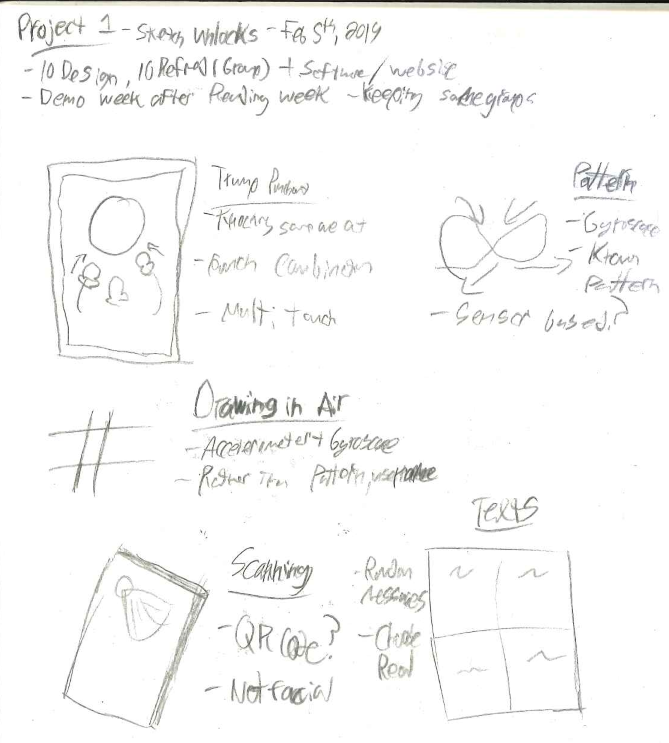 Project 1 - Sketch Unlocks - Feb 5th, 2019
- 10 Design, 10 Refined (Group) + Software / website
- Demo week after Reading week - Keeping same groups
Trump
-
- Punch Combination
- Multi Touch
Pattern
- Gyroscope
- Known
Pattern
- Sensor based?
Drawing in Air
- Accelerometer + Gyroscope
- Rather Than Pattern, use
Scanning
- QR Code?
- Not facial
Texts
- Random
messages
Read